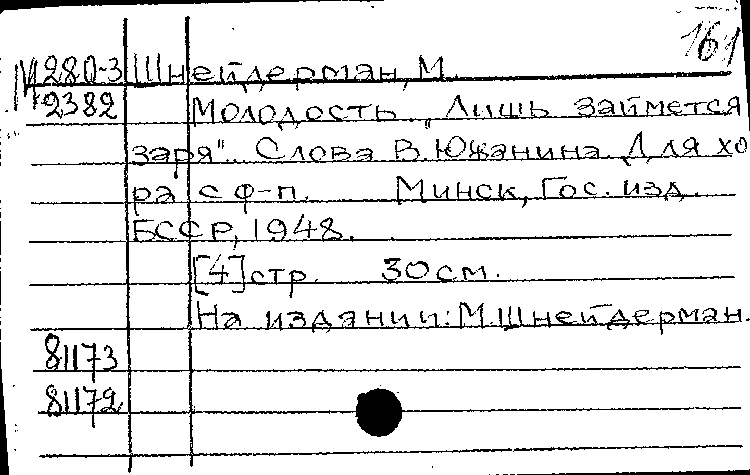 161
М280-3 Шнейдерман, М.
2382 Молодость. „Лишь займется
заря". Слова В. Южанина. Для хо
ра с ф-п. Минск, Гос. изд.
БССР, 1948.
[4] стр. 30 см.
На издании: М. Шнейдерман.
81173
81172